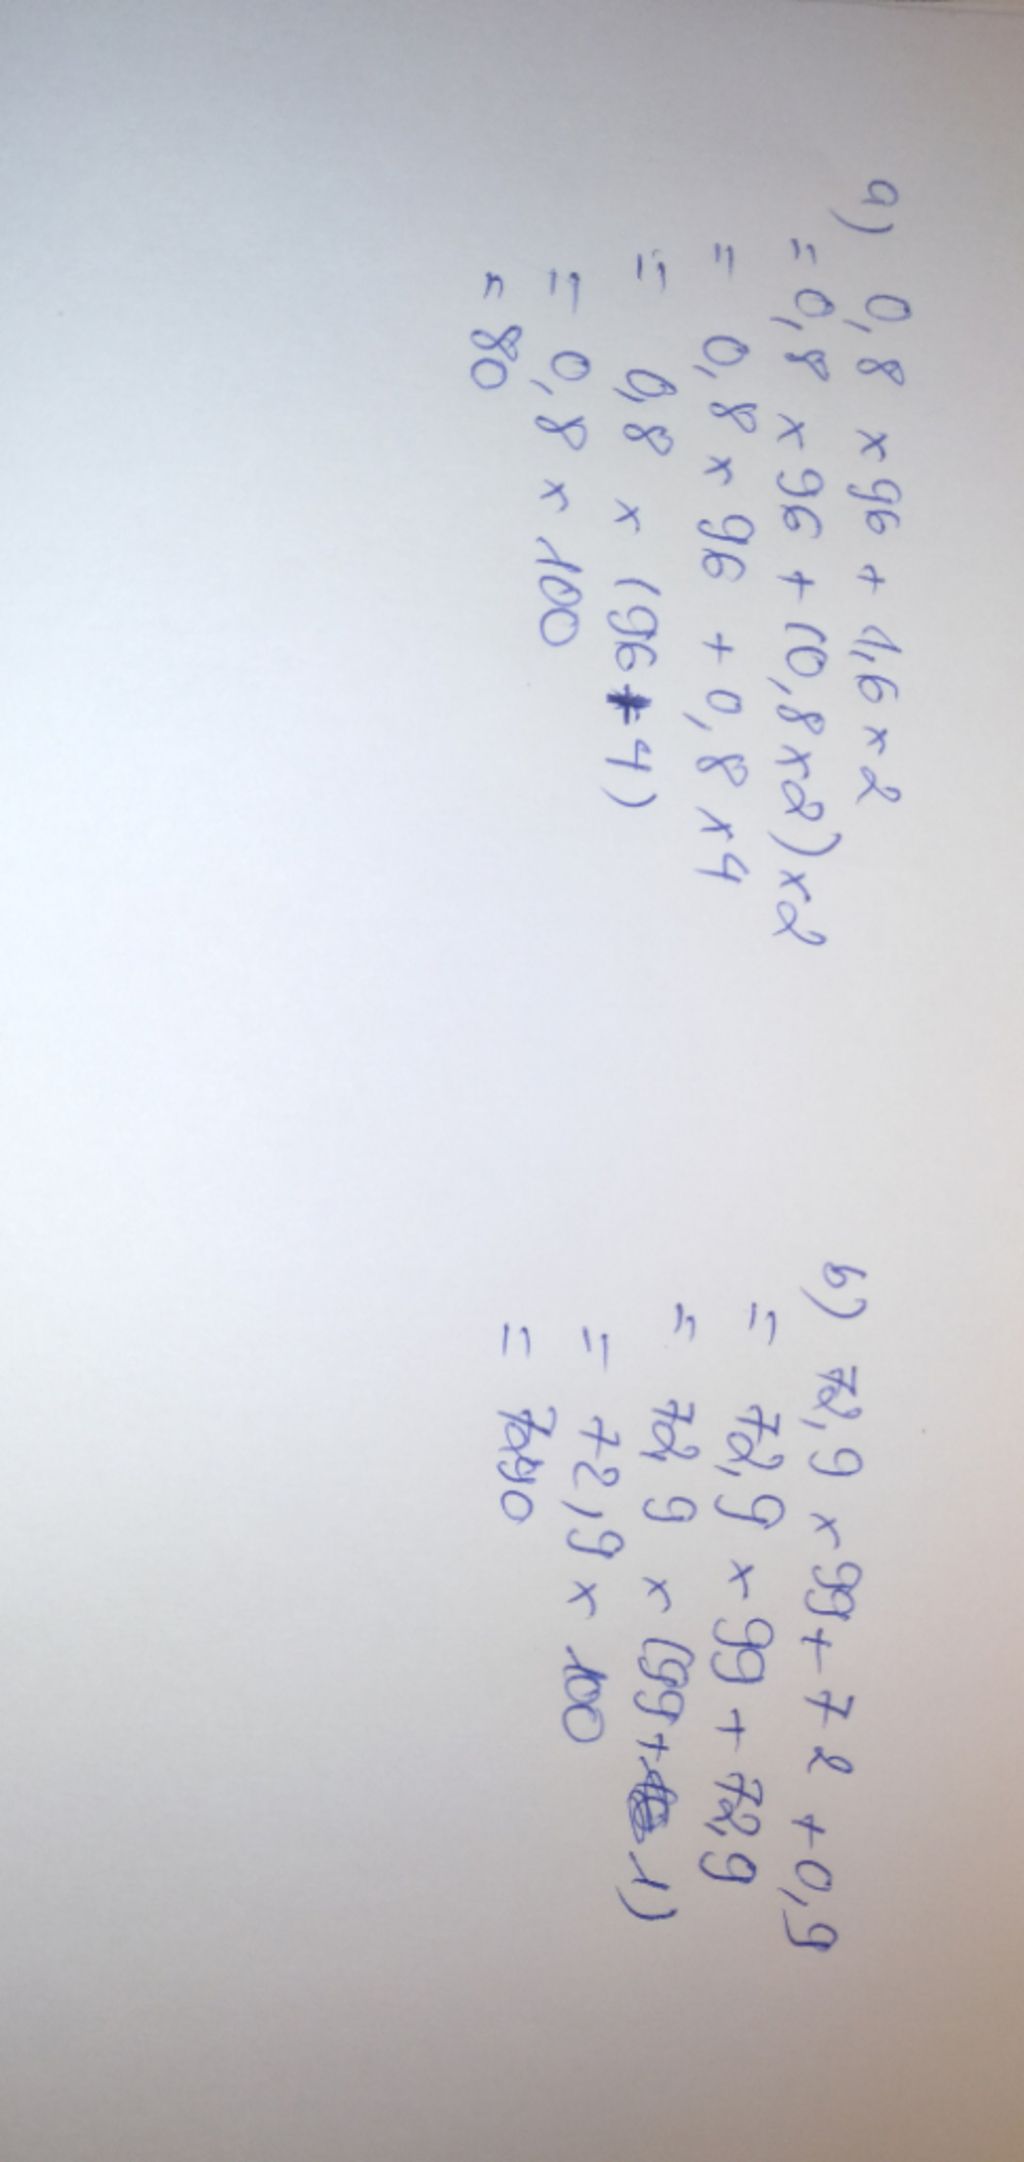 a) 0,8 x 96 + 1,6 x 2
= 0,8 x 96 + (0,8 x 2) x 2
= 0,8 x 96 + 0,8 x 4
= 0,8 x (96 + 4)
= 0,8 x 100
= 80
b) 72,9 x 99 + 72 + 0,9
= 72,9 x 99 + 72,9
= 72,9 x (99 + 1)
= 72,9 x 100
= 7290